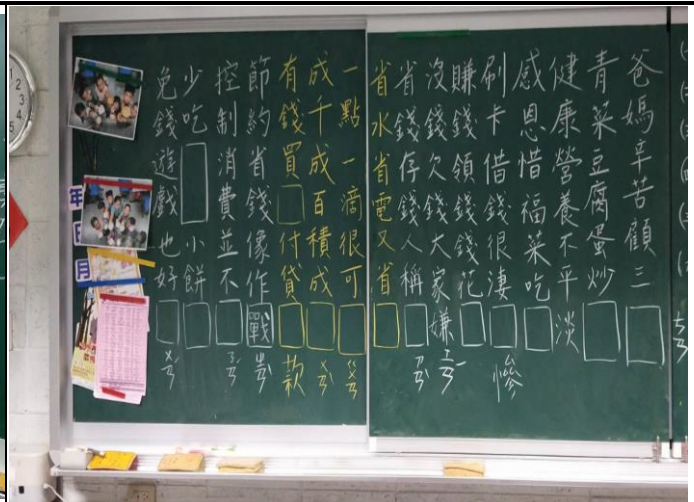 爸媽辛苦顧三
青菜豆腐蛋炒
健康營養不平淡
感恩惜福菜吃
刷卡借錢很淒慘
賺錢領錢錢花
沒錢欠錢大家嫌
省錢存錢人稱
省水省電又省
一點一滴很可
成千成百積成ㄨㄢ
有錢買付貸款
節約省錢像作戰
控制消費並不
少吃小餅
免錢遊戲也好ㄨㄢ
年
月